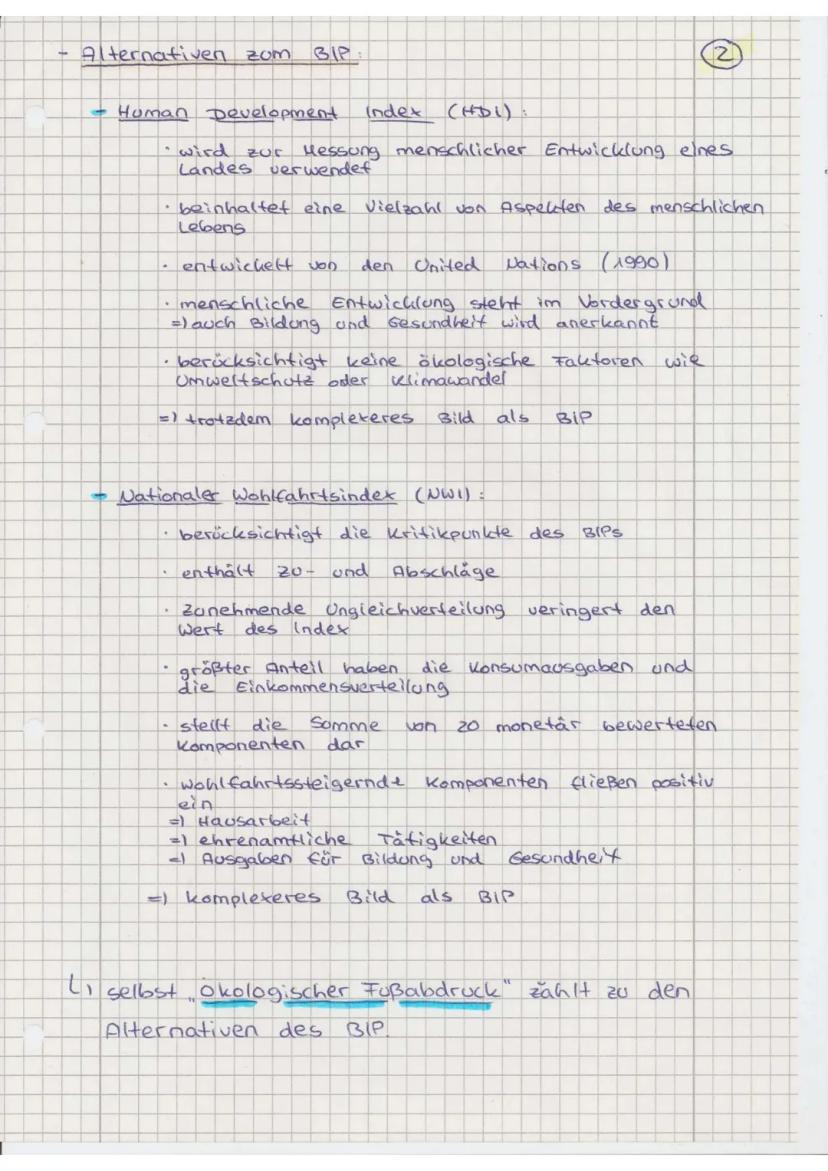 - Alternativen zum BIP:
2
- Human Development Index (HDI):
· wird zur Messung menschlicher Entwicklung eines
Landes verwendet
· beinhaltet eine Vielzahl von Aspekten des menschlichen
Lebens
· entwickelt von den United Nations (1990)
· menschliche Entwicklung steht im Vordergrund
=) auch Bildung und Gesundheit wird anerkannt
· berücksichtigt keine ökologische Faktoren wie
Umweltschutz oder Klimawandel
=) trotzdem komplexeres Bild als BIP
- Nationaler Wohlfahrtsindex (NWI):
· berücksichtigt die Kritikpunkte des BIPs
· enthält zu- und Abschläge
· Zunehmende Ungleichverteilung veringert den
Wert des Index
· größter Anteil haben die Konsumausgaben und
die Einkommensverteilung
· stellt die Somme von 20 monetär bewerteten
Komponenten dar
· wohlfahrtssteigernde Komponenten fließen positiv
ein
=) Hausarbeit
=) ehrenamtliche Tätigkeiten
=) Ausgaben für Bildung und Gesundheit
=) komplexeres Bild als BIP
↳ selbst „Ökologischer Fußabdruck" zählt zu den
Alternativen des BIP.